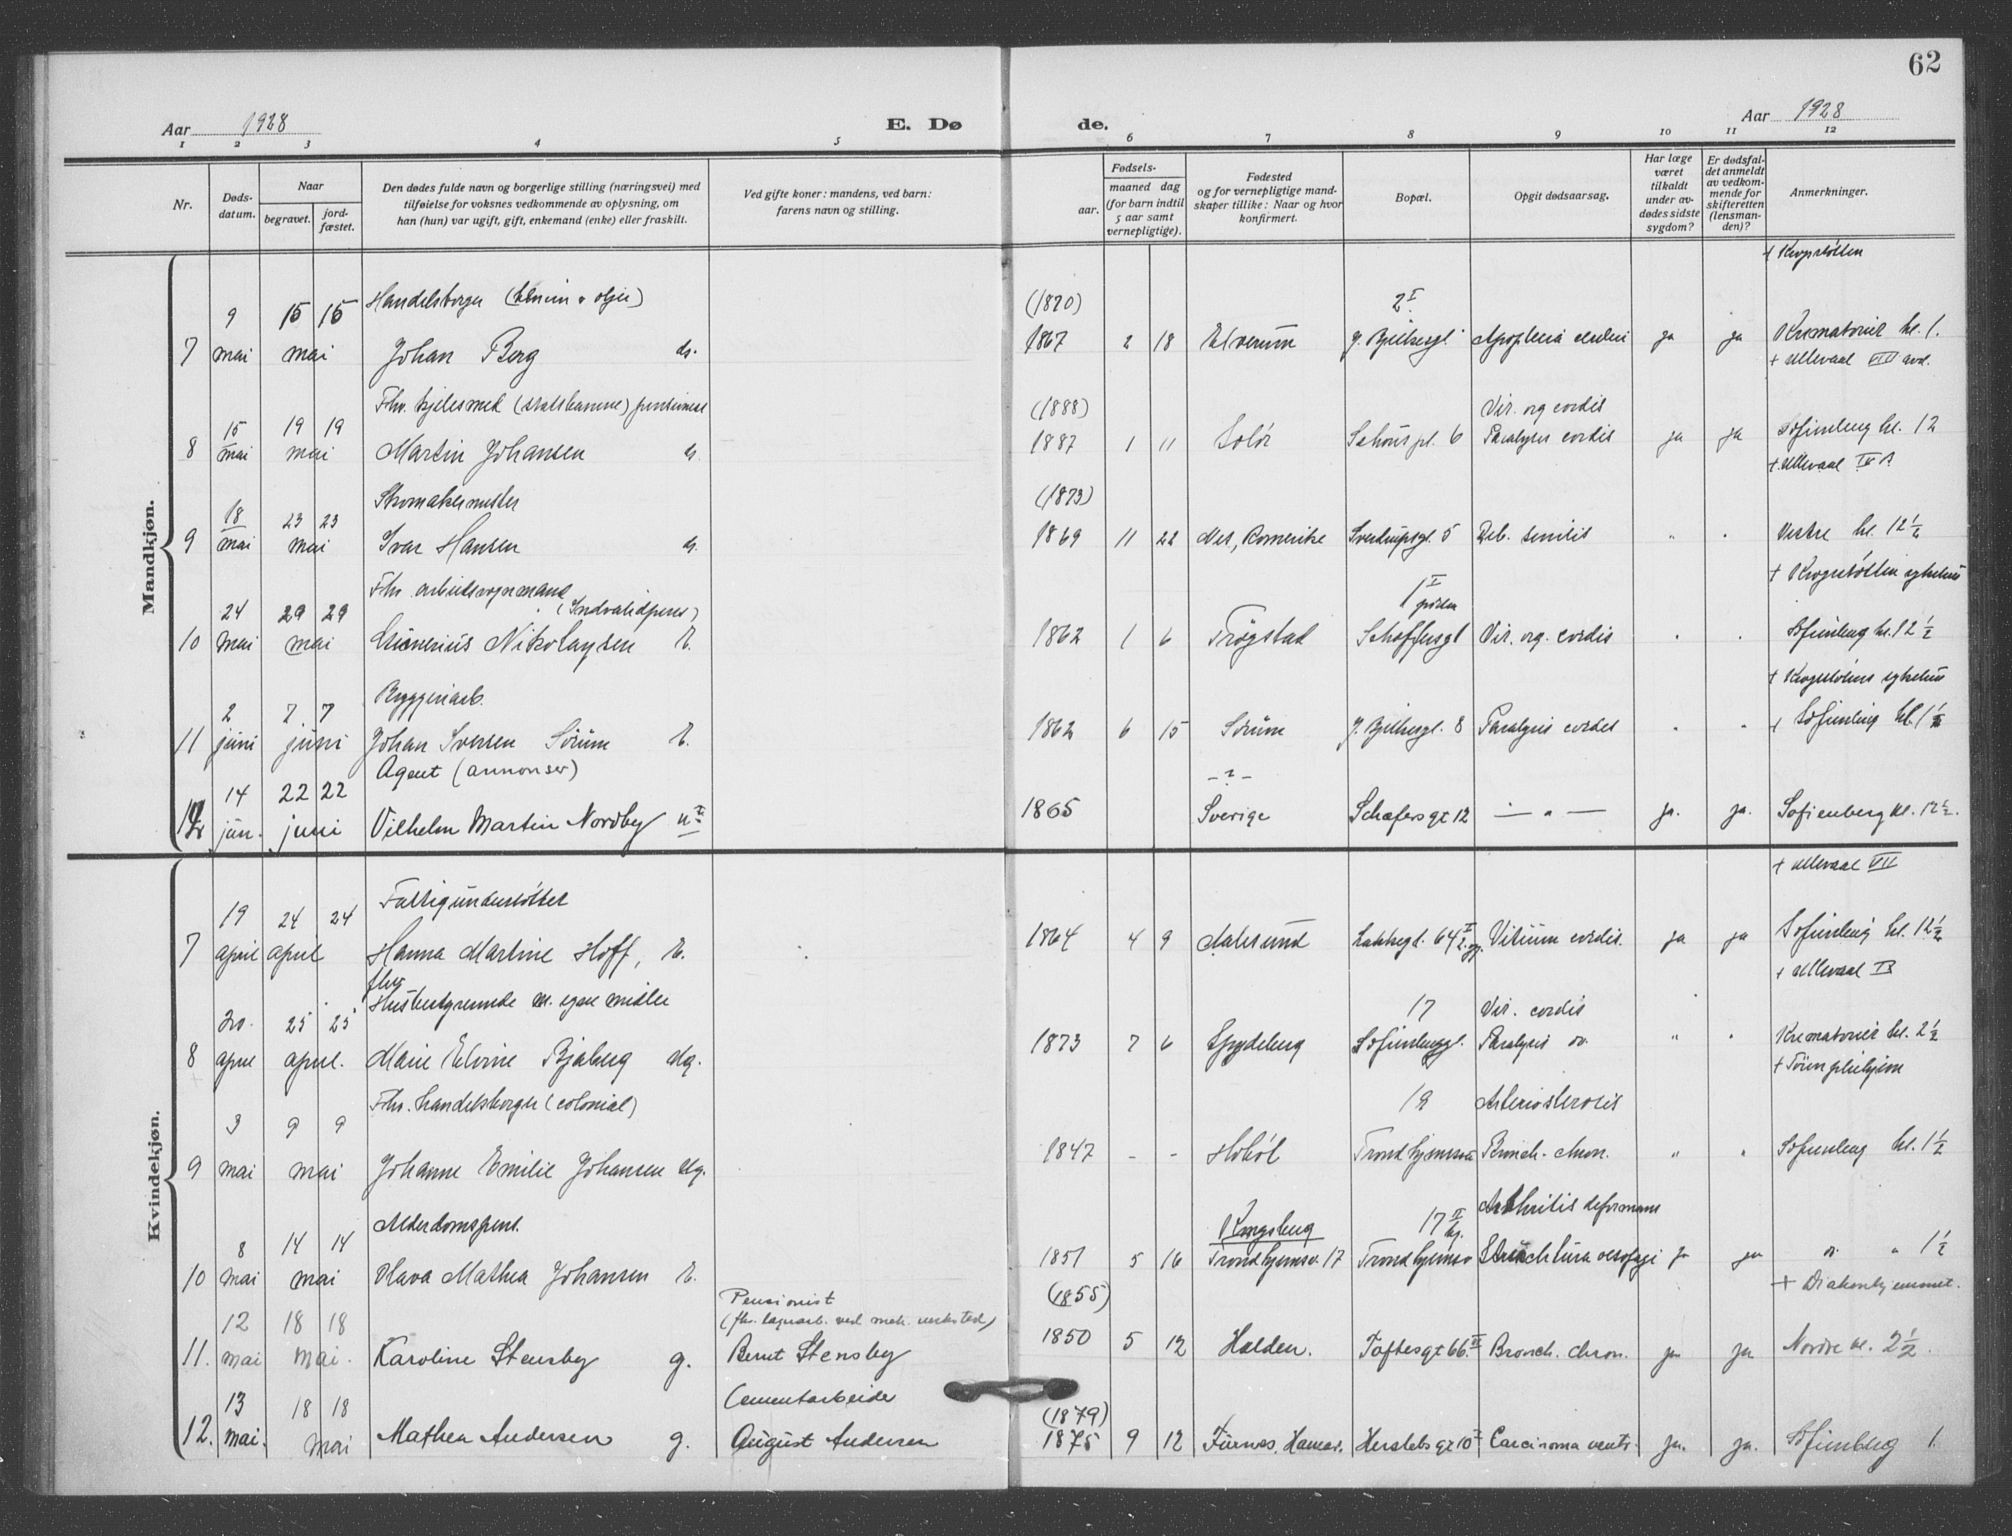 62
Aar 1928
E. Dø
de.
Aar 1928
1 2 3 4 5 6 7 8 9 10 11 12
Nr.
Døds-
datum.
Naar
begravet.
jord-
fæstet.
Den dødes fulde navn og borgerlige stilling (næringsvei) med
tilføielse for voksnes vedkommende av oplysning, om
han (hun) var ugift, gift, enkemand (enke) eller fraskilt.
Ved gifte koner: mandens, ved barn:
farens navn og stilling.
Fødsels-
aar.
maaned dag
(for barn indtil
5 aar samt
vernepligtige).
Fødested
og for vernepligtige mand-
skaper tillike: Naar og hvor
konfirmert.
Bopæl.
Opgit dødsaarsag.
Har læge
været
tilkaldt
under av-
dødes sidste
sygdom?
Er dødsfal-
det anmeldt
av vedkom-
mende for
skifteretten
(lensman-
den)?
Anmerkninger.
Mandkjøn.
+ Krogstøtten
9 15 15 Handelsborger (1870) 2 I
7 mai mai Johan Berg 1867 2 18 Elverum ja ja Krematoriet kl. 1.
+ Ullevaal VIII avd.
Fhv. (1888) Vit. org cordis
15 19 19
8 mai mai Martin Johansen 1887 1 11 Solør Schous pl. 6 Paralysis cordis ja ja Sofienberg kl. 12
+ Ullevaal
Skomakermester (1873)
18 23 23
9 mai mai Ivar Hansen 1869 11 22 Nes, Romerike Sverdrupsgt. 5 Deb. senilis " " Vestre kl. 12 1/2
+ Krogstøtten sykehus
Fhv. arbeidsformand 1 I
24 29 29
10 mai mai Nikolaysen 1862 1 6 Trøgstad Vit. org. cordis " " Sofienberg kl. 12 1/2
+ Krogstøtens sykehus
Bryggeriarb.
2 7. 7
11 juni juni Johan Iversen Sørum 1862 6 15 Sørum 8 Paralysis cordis " " + Sofienberg kl. 1 1/2
Agent (annonser) - ? -
14 22 22
12 jun. juni Vilhelm Martin Nordby 1865 Sverige Schæfersgt 12 — " — ja. ja. Sofienberg kl. 12 1/2.
Kvindekjøn.
+ Ullevaal VII
Fattigunderstøttet
19 24 24
7 april april Hanna Martine Hoff, 1864 4 9 Aalesund 64 Vitium cordis. ja ja Sofienberg kl. 12 1/2
+ Ullevaal
fhv.
m. egne midler 17 Vit. cordis
20. 25 25
8 april april. Marie Elvine Bjaberg 1873 7 6 Spydeberg Sofienberggt. Paralysis " " Krematoriet kl. 2 1/2
Fhv. handelsborger (colonial) 19 Arteriosclerosis
3 9 9
9 mai mai Johanne Emilie Johansen 1847 - - Hobøl Bronch. chron. " " Sofienberg kl. 1 1/2
Alderdomspens. Kongsberg 17 II Arthritis deformans
8 14 14
10 mai mai Mathea Johansen 1851 5 16 Trondhjemsv. 17 Trondhjemsv ja ja " 1 1/2
+ Diakonhjemmet.
Pensionist (1855)
12 18 18
11. mai mai. Karoline Stensby g. Bernt Stensby 1850 5 12 Halden. Toftesgt 66 II Bronch. chron. ja ja Nordre kl. 2 1/2.
Cementarbeider (1879)
13 18 18
12. mai. mai Mathea Andersen g. August Andersen 1875 9 12 Furnes, Hamar. Herslebsgt 10 I Carcinoma ventr. ja. ja. Sofienberg 1.